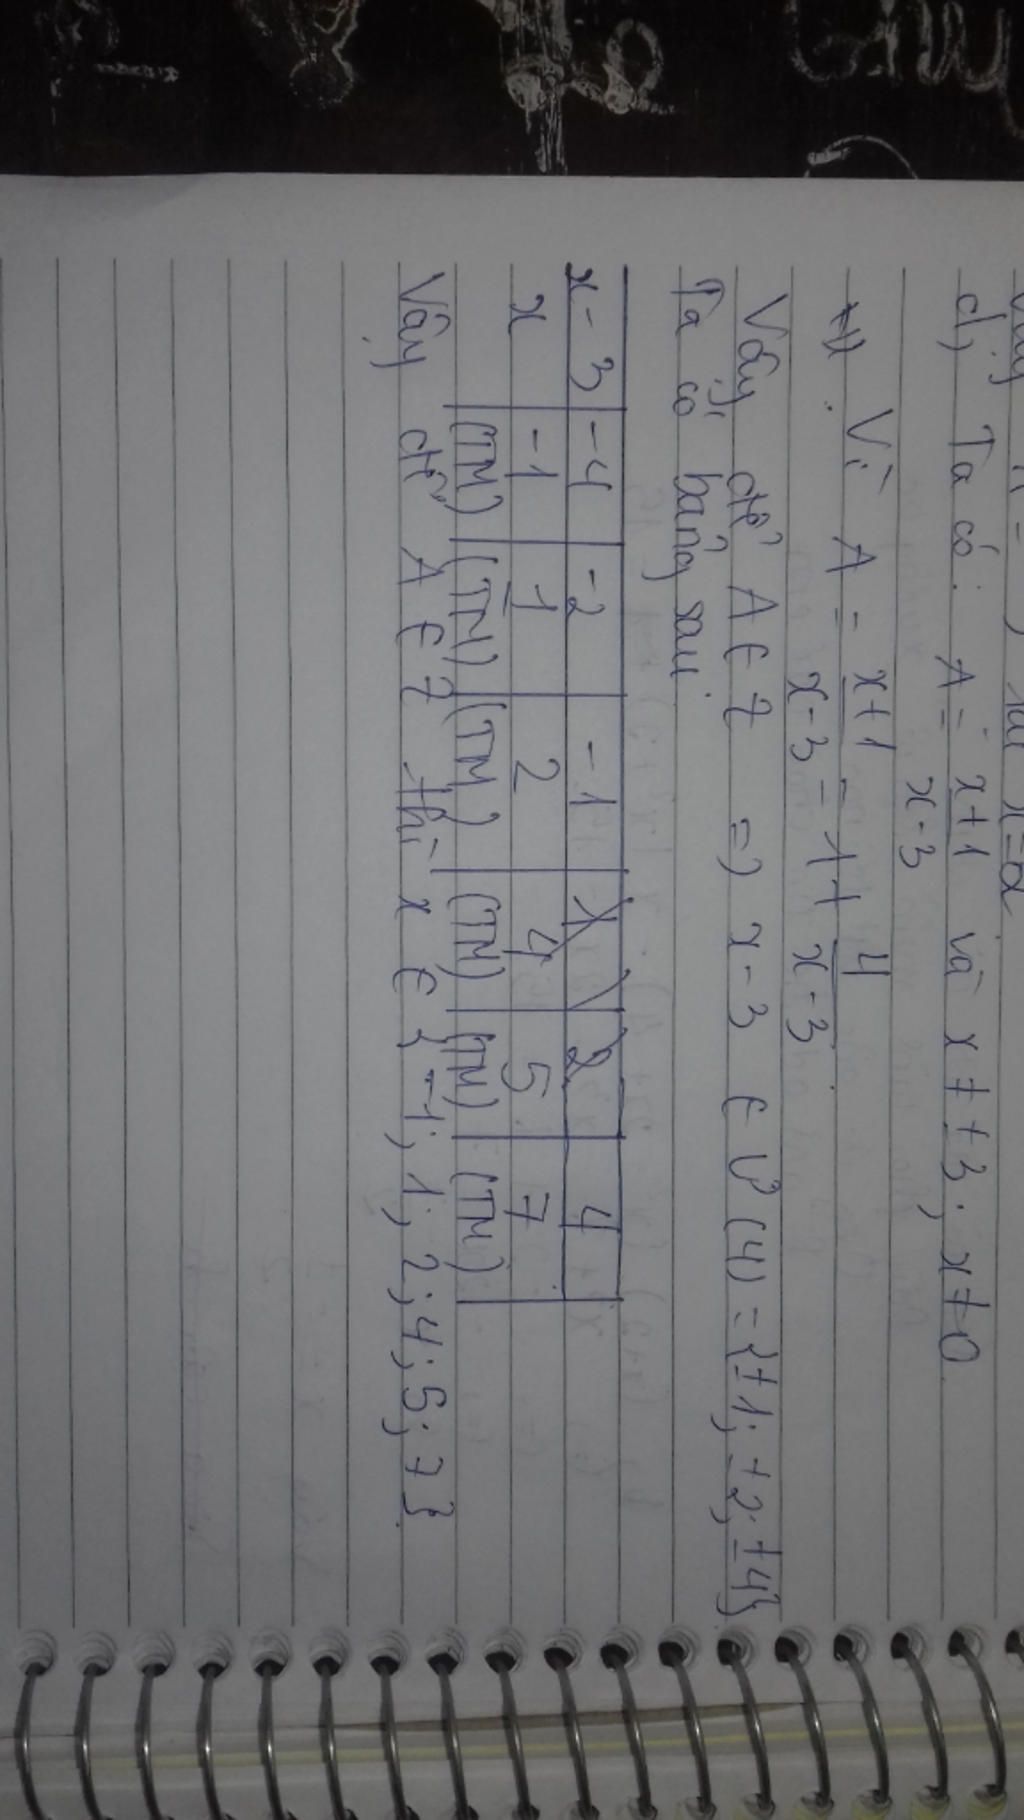 x = 2
d, Ta có: A = x+1/x-3 và x ≠ ±3; x ≠ 0
Vì A = x+1/x-3 = 1 + 4/x-3
Vậy để A ∈ Z => x - 3 ∈ Ư(4) = {±1; ±2; ±4}
Ta có bảng sau
x - 3 -4 -2 -1 1 2 4
x -1 1 2 4 5 7
(TM) (TM) (TM) (TM) (TM) (TM)
Vậy để A ∈ Z thì x ∈ { -1; 1; 2; 4; 5; 7 }